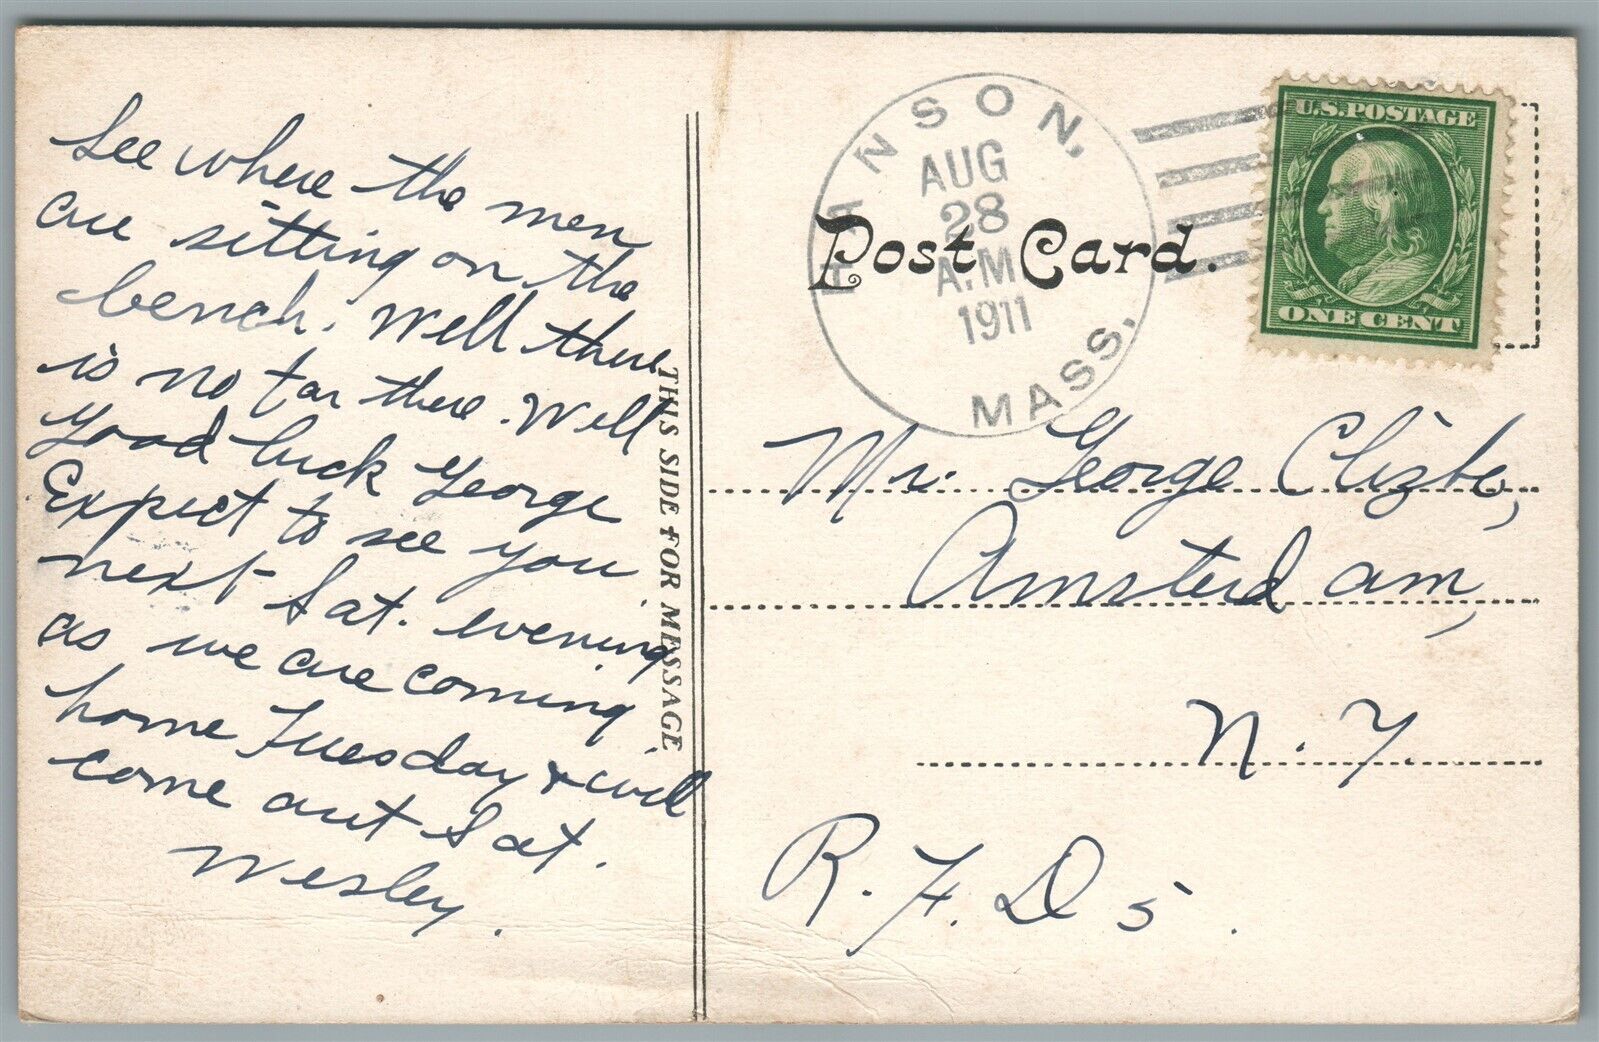 See where the men
are sitting on the
bench. Well there
is no tar there. Well
good luck George
Expect to see you
next Sat. evening
as we are coming
home Tuesday & will
come out Sat.
Wesley.
THIS SIDE FOR MESSAGE
HANSON,
MASS.
AUG
28
A.M
1911
Post Card.
U.S. POSTAGE
ONE CENT
Mr. George Clizbe,
Amsterdam,
N. Y.
R. F. D 5.